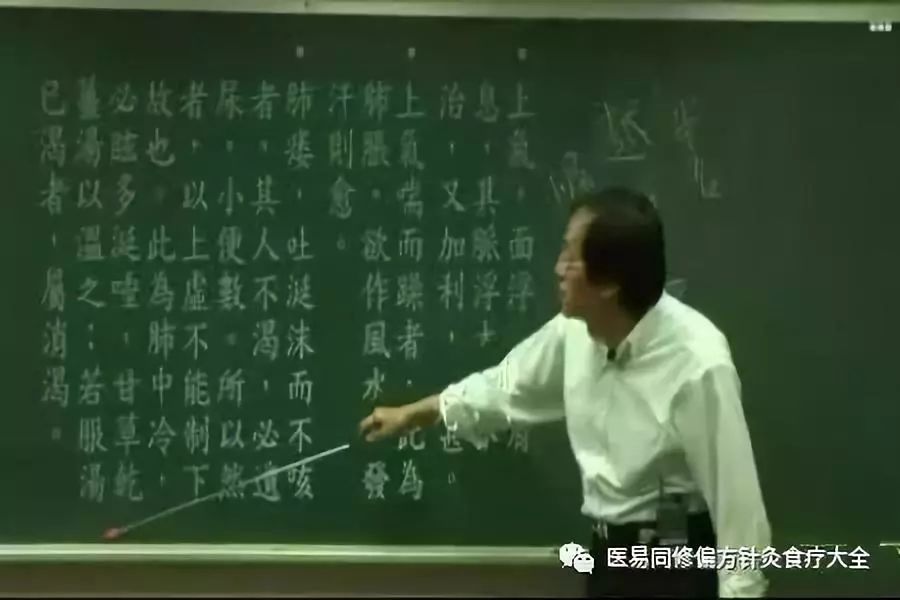 上氣，面浮肩
息，其脈浮大
治，又加利，甚。
上氣喘而躁者，此為
肺脹，欲作風水，發
汗則愈。
肺痿，吐涎沫而不咳
者，其人不渴，必遺
尿，小便數。所以然
者，以上虛不能制下
故也。此為肺中冷，
必眩多涎唾，甘草乾
薑湯以溫之；若服湯
已渴者，屬消渴。
医易同修偏方针灸食疗大全